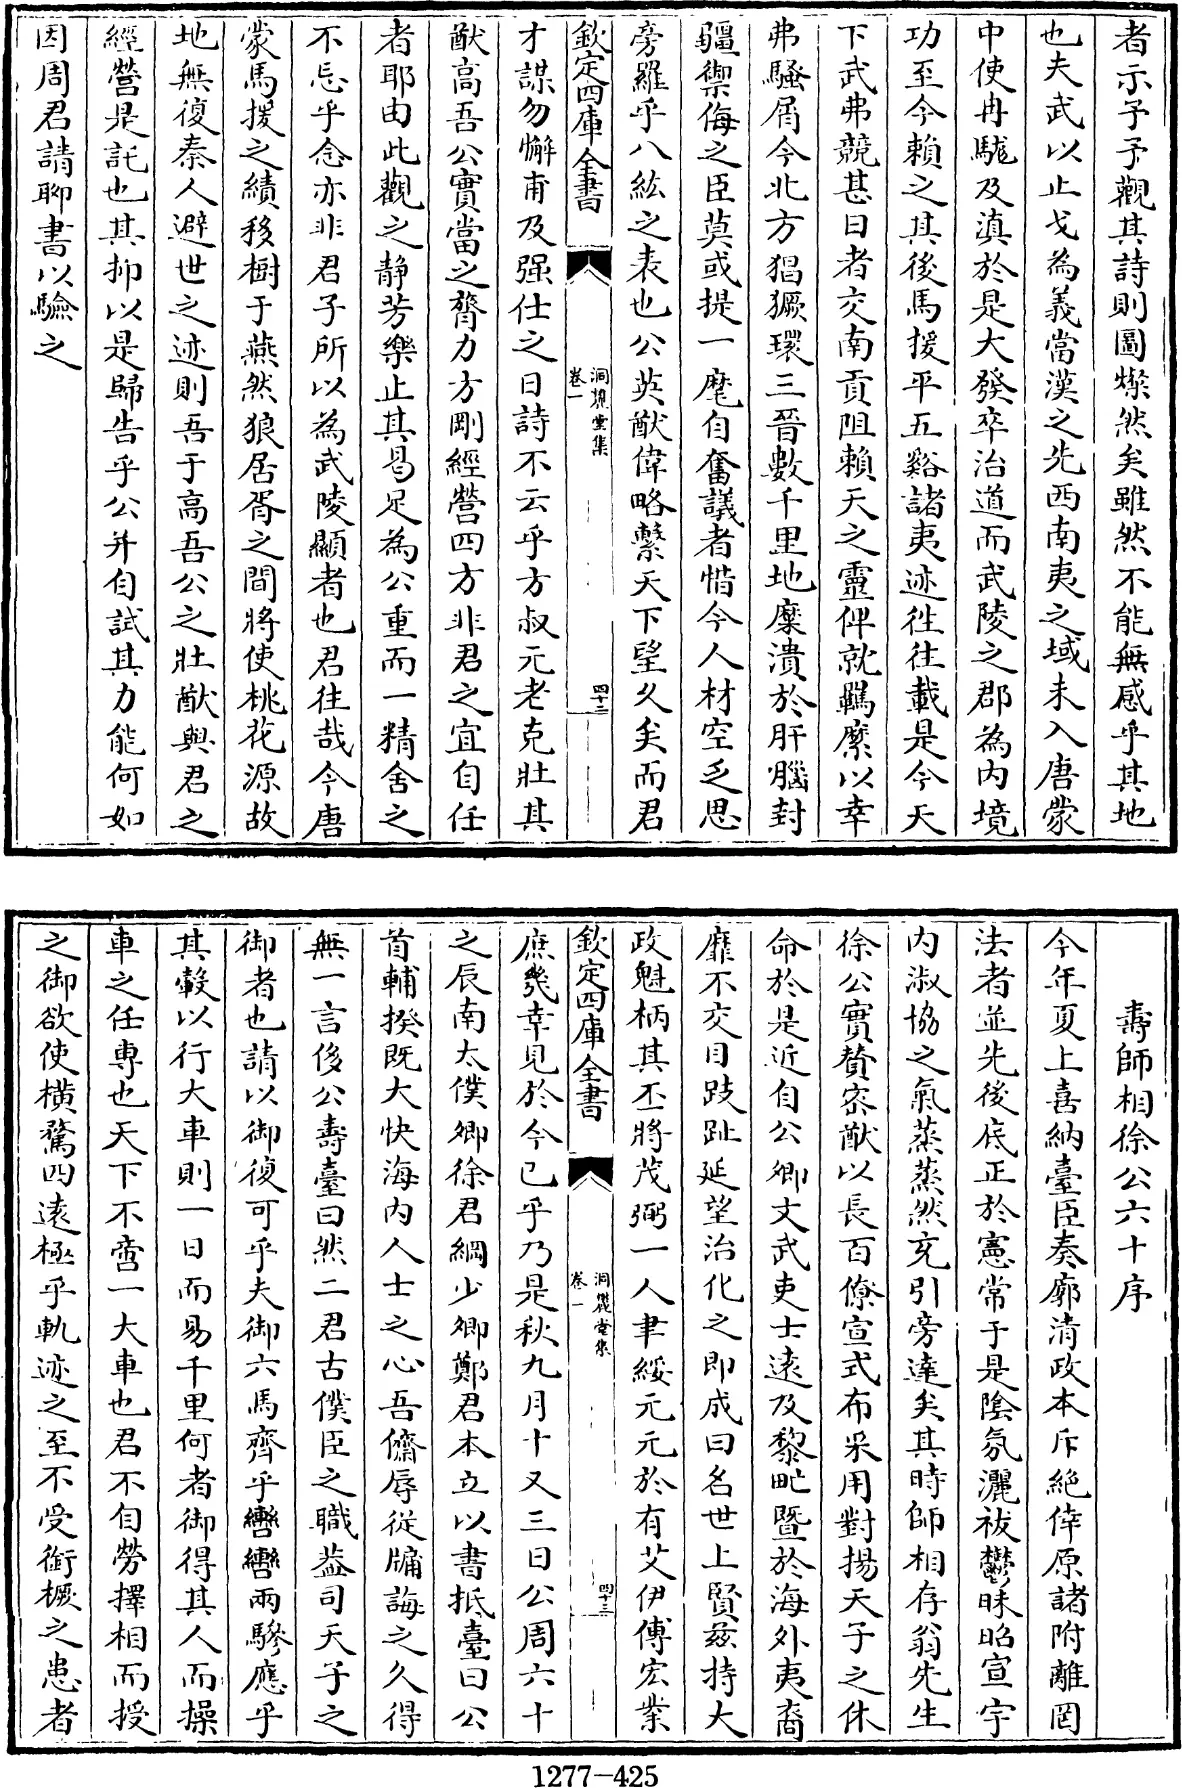 者示予予觀其詩則圖燦然矣雖然不能無感乎其地
也夫武以止戈為義當漢之先西南夷之域未入唐蒙
中使冉駹及滇於是大發卒治道而武陵之郡為内境
功至今賴之其後馬援平五谿諸夷迹徃往載是今天
下武弗競甚曰者交南貢阻賴天之靈俾就羈縻以幸
弗騷屑今北方猖獗環三晉數千里地糜潰於肝腦封
疆禦侮之臣莫或提一麾自奮議者惜今人材空乏思
旁羅乎八紘之表也公英猷偉略繫天下望久矣而君
欽定四庫全書
洞麓堂集
卷一
四十二
才謀勿懈甫及强仕之日詩不云乎方叔元老克壯其
猷高吾公實當之膂力方剛經營四方非君之宜自任
者耶由此觀之静芳樂止其曷足為公重而一精舍之
不忘乎念亦非君子所以為武陵顯者也君往哉今唐
蒙馬援之績移樹于燕然狼居胥之間將使桃花源故
地無復秦人避世之迹則吾于高吾公之壯猷與君之
經營是託也其抑以是歸告乎公并自試其力能何如
因周君請聊書以驗之
壽師相徐公六十序
今年夏上喜納臺臣奏廓清政本斥絶倖原諸附離罔
法者並先後底正於憲常于是陰氛灑祓鬱昧昭宣宇
内淑協之氣蒸蒸然充引旁達矣其時師相存翁先生
徐公實贊宻猷以長百僚宣式布采用對揚天子之休
命於是近自公卿文武吏士遠及黎甿暨於海外夷裔
靡不交目跂趾延望治化之即成曰名世上賢兹持大
政魁柄其丕將茂弼一人聿綏元元於有艾伊傅宏業
欽定四庫全書
洞麓堂集
卷一
四十三
庶幾幸見於今已乎乃是秋九月十又三日公周六十
之辰南太僕卿徐君綱少卿鄭君本立以書抵臺曰公
首輔揆既大快海内人士之心吾儕辱從牖誨之久得
無一言侈公壽臺曰然二君古僕臣之職益司天子之
御者也請以御復可乎夫御六馬齊乎轡轡兩驂應乎
其轂以行大車則一日而易千里何者御得其人而操
車之任専也天下不啻一大車也君不自勞擇相而授
之御欲使橫騖四遠極乎軌迹之至不受銜橛之患者
1277-425